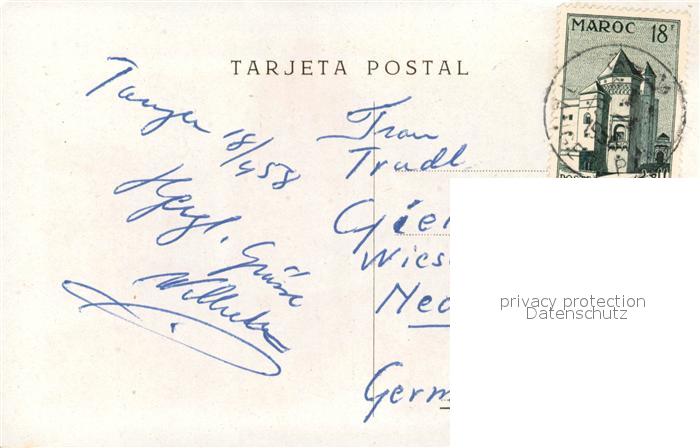 TARJETA POSTAL
MAROC 18F
Tanger 18/4 58
Herzl. Grüsse
Wilhelm
Frau
Trudl
Gie
Wies
Nec
Germ
privacy protection
Datenschutz